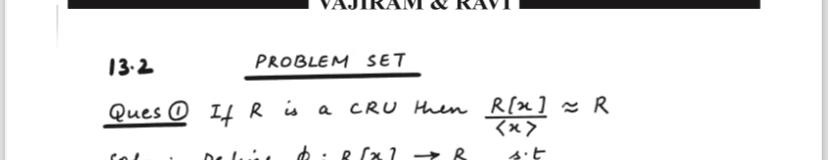 VAJIRAM & RAVI
13.2 PROBLEM SET
Ques ① If R is a CRU then R[x]/<x> ≈ R
Define φ : R[x] → R s.t